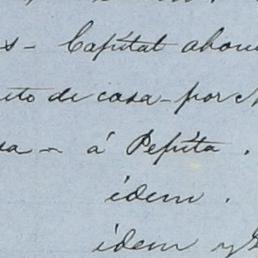 s - Capitat abon
to de casa - por
sa - á Pepita.
idem.
idem y